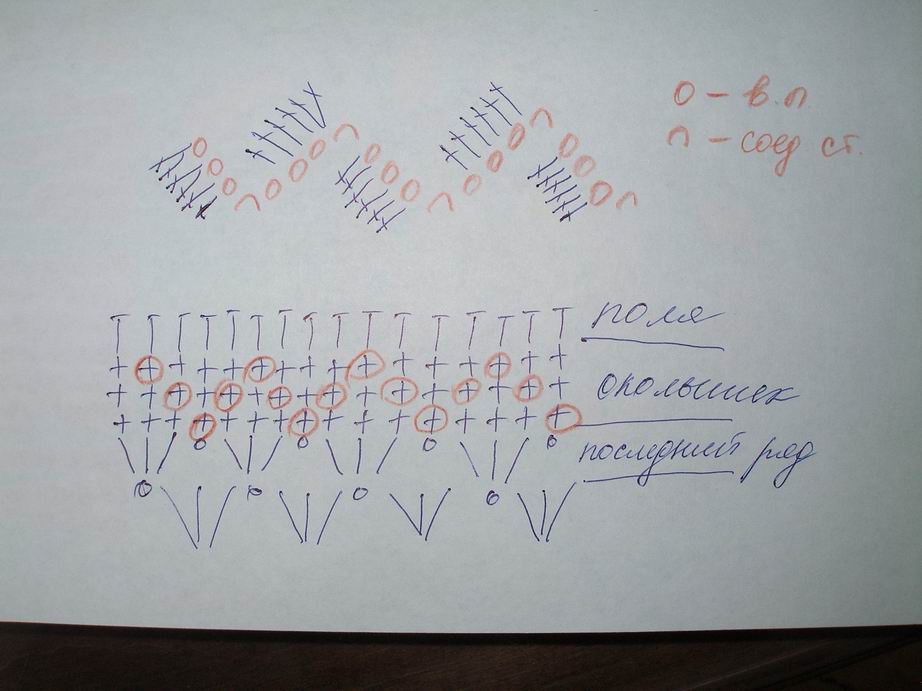 о – в.п.
∩ – соед ст.
поля
околышек
последний ряд